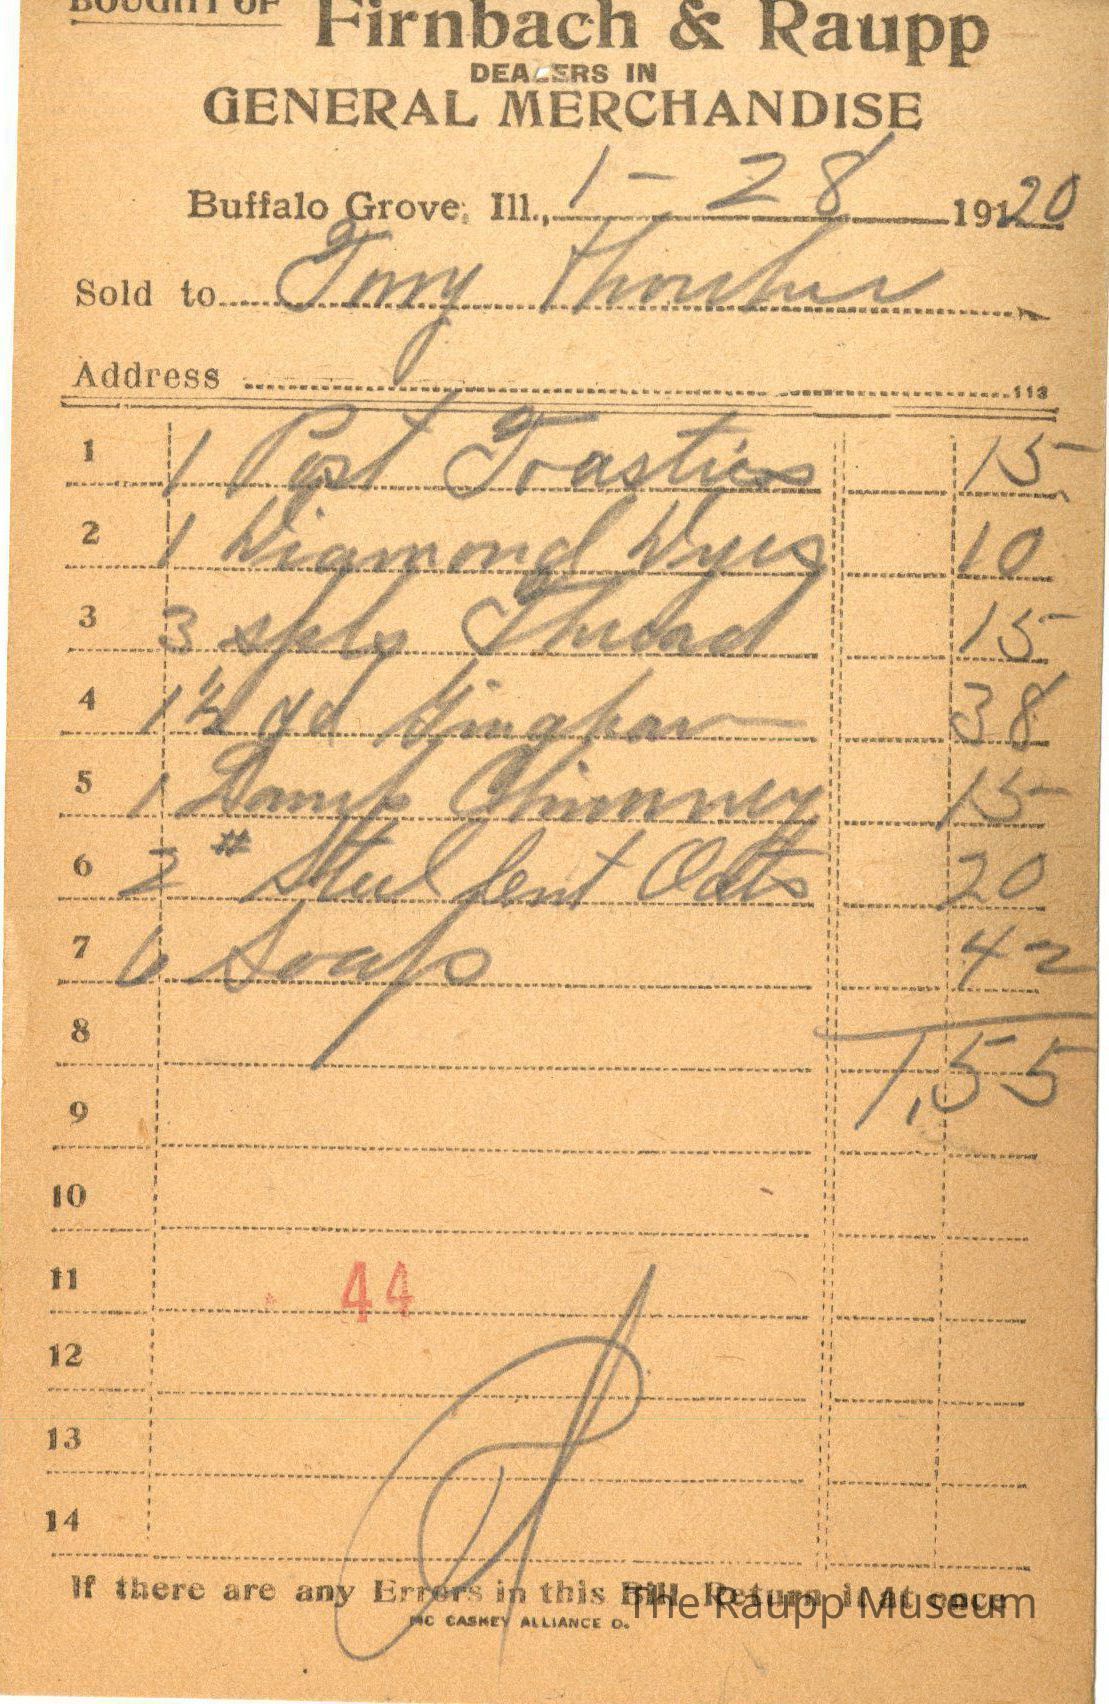 BOUGHT OF Firnbach & Raupp
DEALERS IN
GENERAL MERCHANDISE
Buffalo Grove, Ill., 1-28 191 20
Sold to Tony
Address
113
1 1 Post Toasties 15
2 1 Diamond Dyes 10
3 3 spls Thread 15
4 1½ yd Gingham 38
5 1 Lamp Chimney 15
6 2 # Steel Cut Oats 20
7 6 Soaps 42
8 1,55
9
10
11 44
12
13
14
If there are any Errors in this Bill Return it at once
MC CASKEY ALLIANCE O.
The Raupp Museum